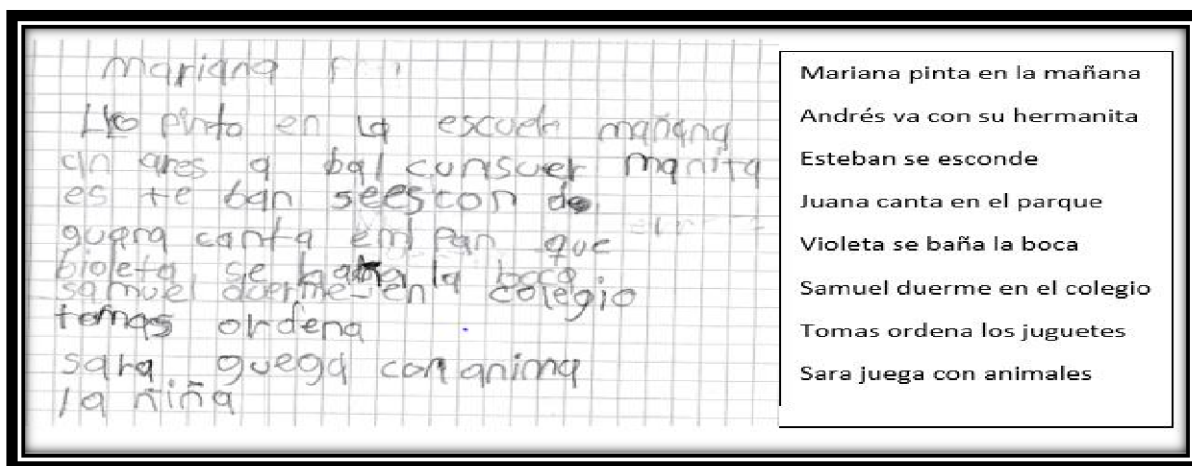 mariana
Yo pinto en la escuela mañana
an ares a bal cunsuer manita
es te ban seescon de
guana canta em pan que
bioleta se baña la boca
samuel duerme en colegio
tomas ordena
sara guega con anima
la niña
Mariana pinta en la mañana
Andrés va con su hermanita
Esteban se esconde
Juana canta en el parque
Violeta se baña la boca
Samuel duerme en el colegio
Tomas ordena los juguetes
Sara juega con animales